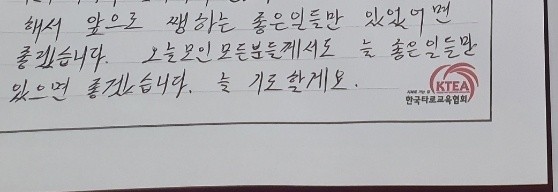 해서 앞으로 쨍하는 좋은일들만 있었어면
좋겠습니다. 오늘모인모든분들께서도 늘 좋은일들만
있으면 좋겠습니다. 늘 기도할게요.
KTEA
한국타로교육협회